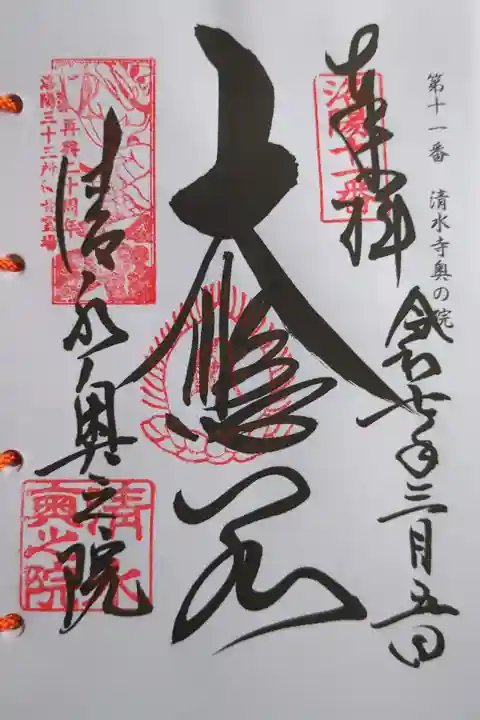 第十一番 清水寺奥の院
奉拝
令和七年三月五日
洛陽十一番
大悲閣
清水奥之院
再興二十周年
洛陽三十三所観音霊場
清水
奥之院